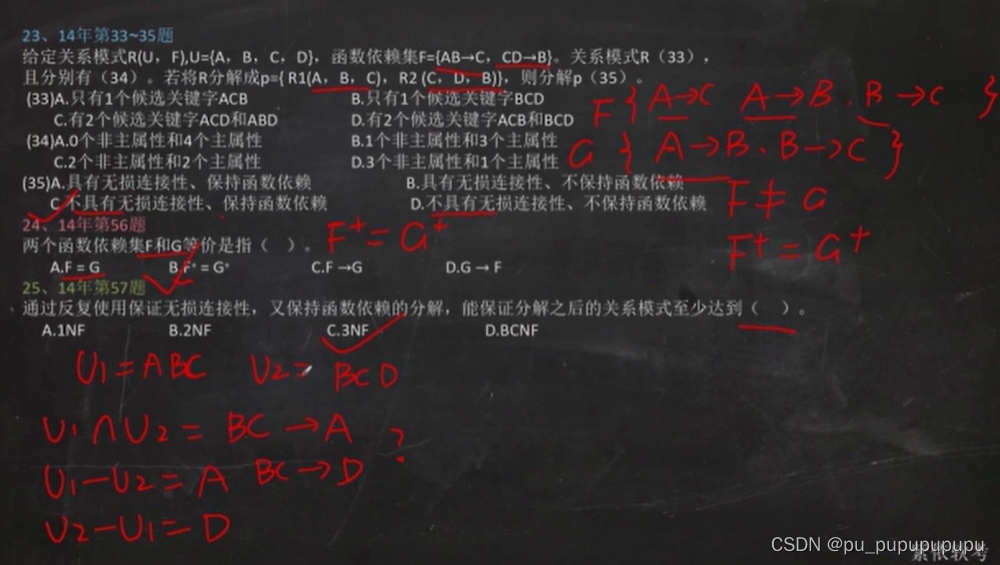 23、14年第33~35题
给定关系模式R(U，F),U={A，B，C，D}，函数依赖集F={AB→C，CD→B}。关系模式R（33），
且分别有（34）。若将R分解成p={ R1(A，B，C)，R2 (C，D，B)}，则分解p（35）。
(33)A.只有1个候选关键字ACB B.只有1个候选关键字BCD
C.有2个候选关键字ACD和ABD D.有2个候选关键字ACB和BCD
F { A→C A→B . B→C }
(34)A.0个非主属性和4个主属性 B.1个非主属性和3个主属性
C.2个非主属性和2个主属性 D.3个非主属性和1个主属性
G { A→B . B→C }
(35)A.具有无损连接性、保持函数依赖 B.具有无损连接性、不保持函数依赖
C.不具有无损连接性、保持函数依赖 D.不具有无损连接性、不保持函数依赖
F ≠ G
24、14年第56题
F⁺ = G⁺
两个函数依赖集F和G等价是指（ ）。
F⁺ = G⁺
A.F = G B.F⁺ = G⁺ C.F →G D.G → F
25、14年第57题
通过反复使用保证无损连接性，又保持函数依赖的分解，能保证分解之后的关系模式至少达到（ ）。
A.1NF B.2NF C.3NF D.BCNF
U1=ABC U2= BCD
U1∩U2= BC →A ?
U1-U2= A BC→D
U2-U1= D
CSDN @pu_pupupupupu